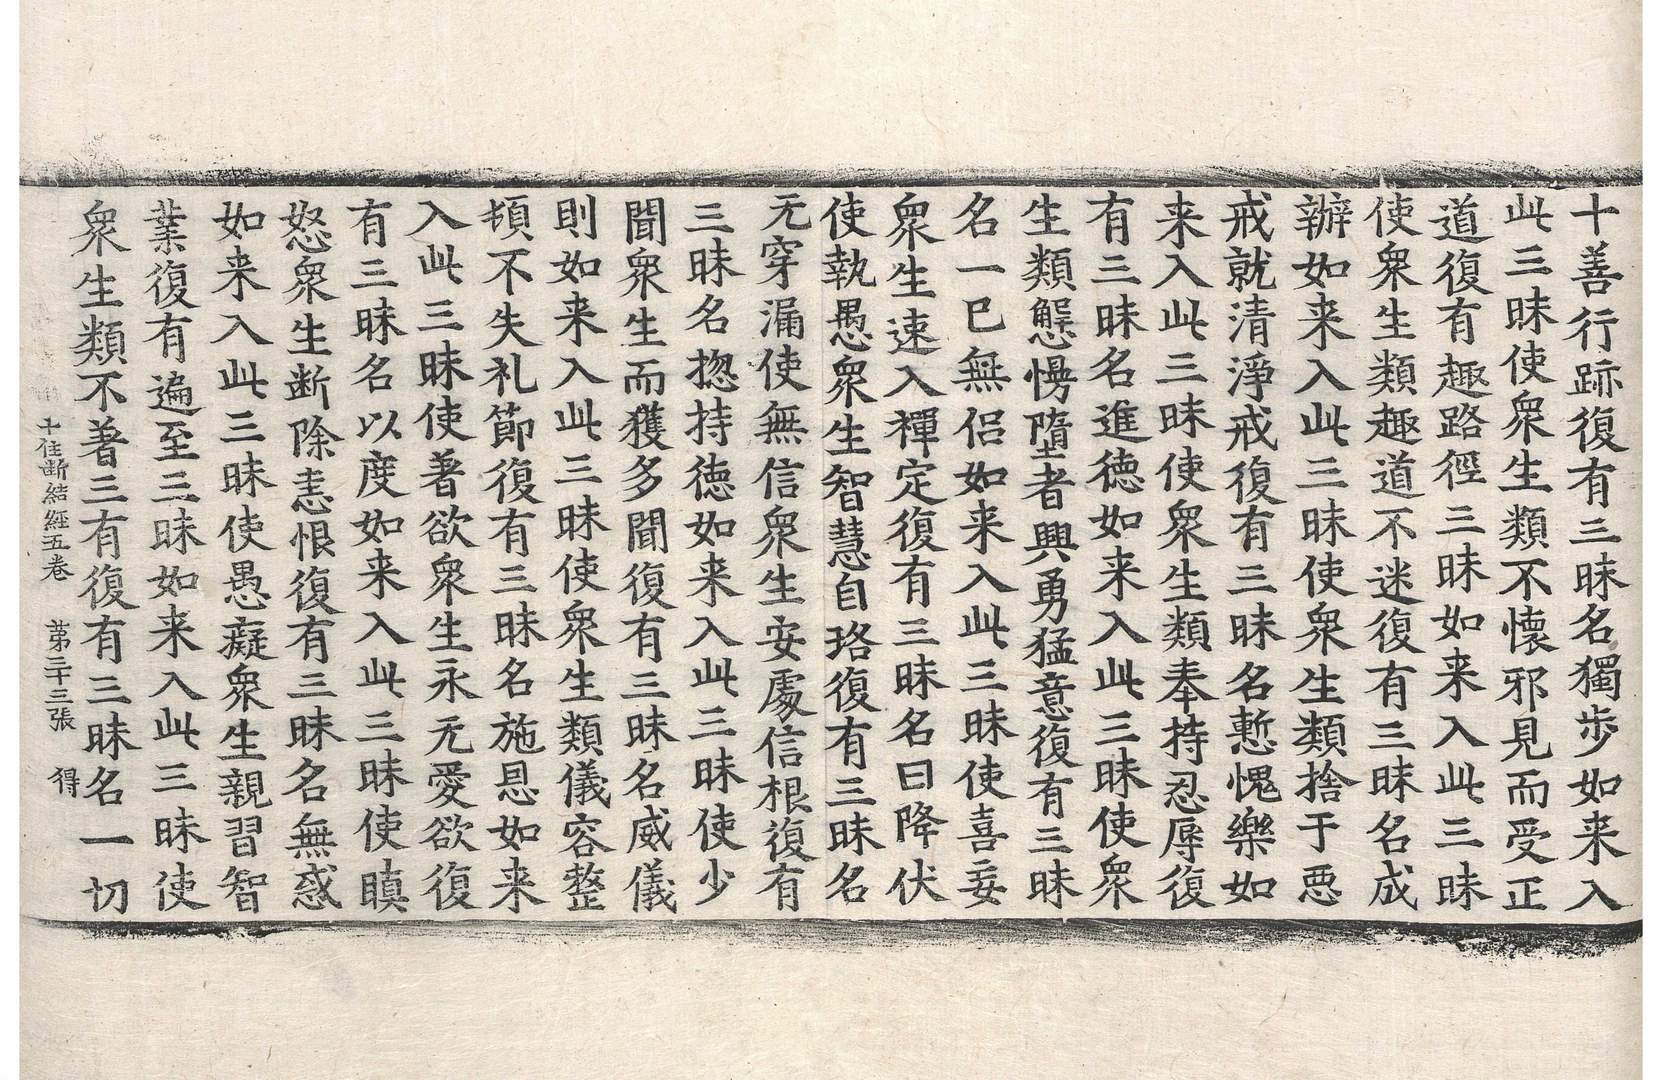 十善行跡復有三昧名獨步如来入
此三昧使衆生類不懷邪見而受正
道復有趣路徑三昧如来入此三昧
使衆生類趣道不迷復有三昧名成
辦如来入此三昧使衆生類捨于惡
戒就清淨戒復有三昧名慙愧樂如
来入此三昧使衆生類奉持忍辱復
有三昧名進德如来入此三昧使衆
生類懈慢墮者興勇猛意復有三昧
名一已無侣如来入此三昧使喜妄
衆生速入禪定復有三昧名曰降伏
使執愚衆生智慧自珞復有三昧名
无穿漏使無信衆生安處信根復有
三昧名揔持德如来入此三昧使少
聞衆生而獲多聞復有三昧名威儀
則如来入此三昧使衆生類儀容整
頓不失礼節復有三昧名施恩如来
入此三昧使著欲衆生永无愛欲復
有三昧名以度如来入此三昧使瞋
怒衆生断除恚恨復有三昧名無惑
如来入此三昧使愚癡衆生親習智
業復有遍至三昧如来入此三昧使
衆生類不著三有復有三昧名一切
十住断結經五卷 第二十三張 得